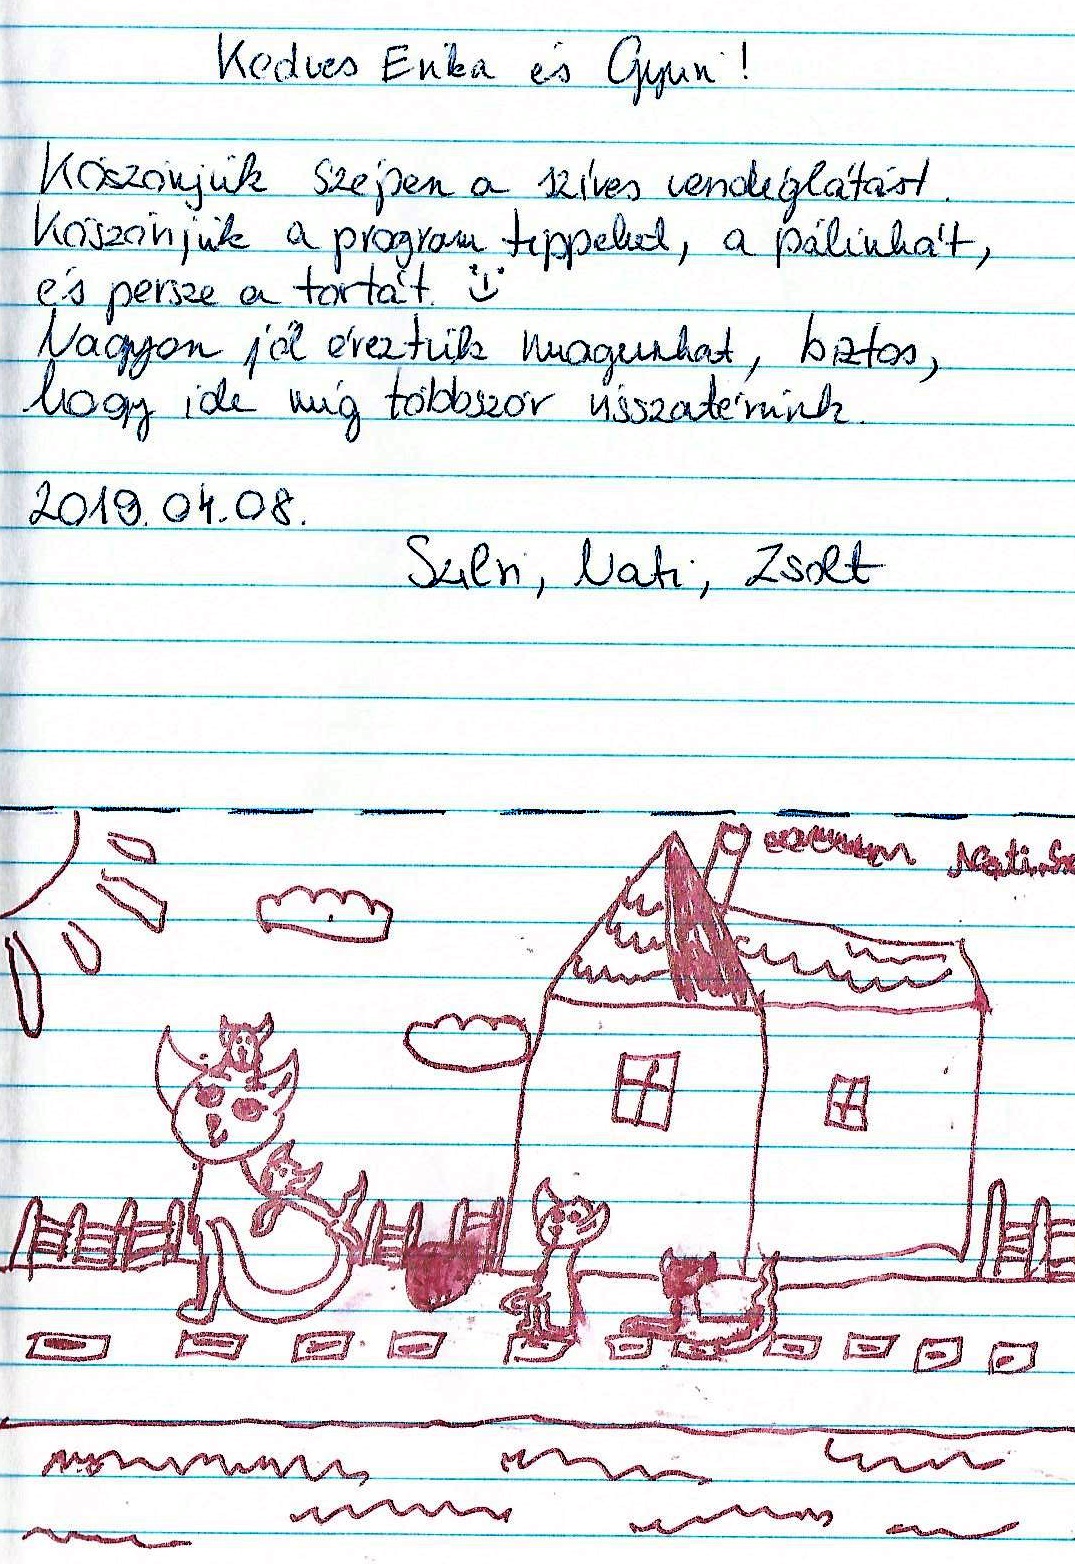 Kedves Erika és Gyuri!
Köszönjük szépen a szíves vendéglátást.
Köszönjük a program tippeket, a pálinkát,
és persze a tortát.
Nagyon jól éreztük magunkat, biztos,
hogy ide még többször visszatérünk.
2019.04.08.
Szilvi, Nati, Zsolt